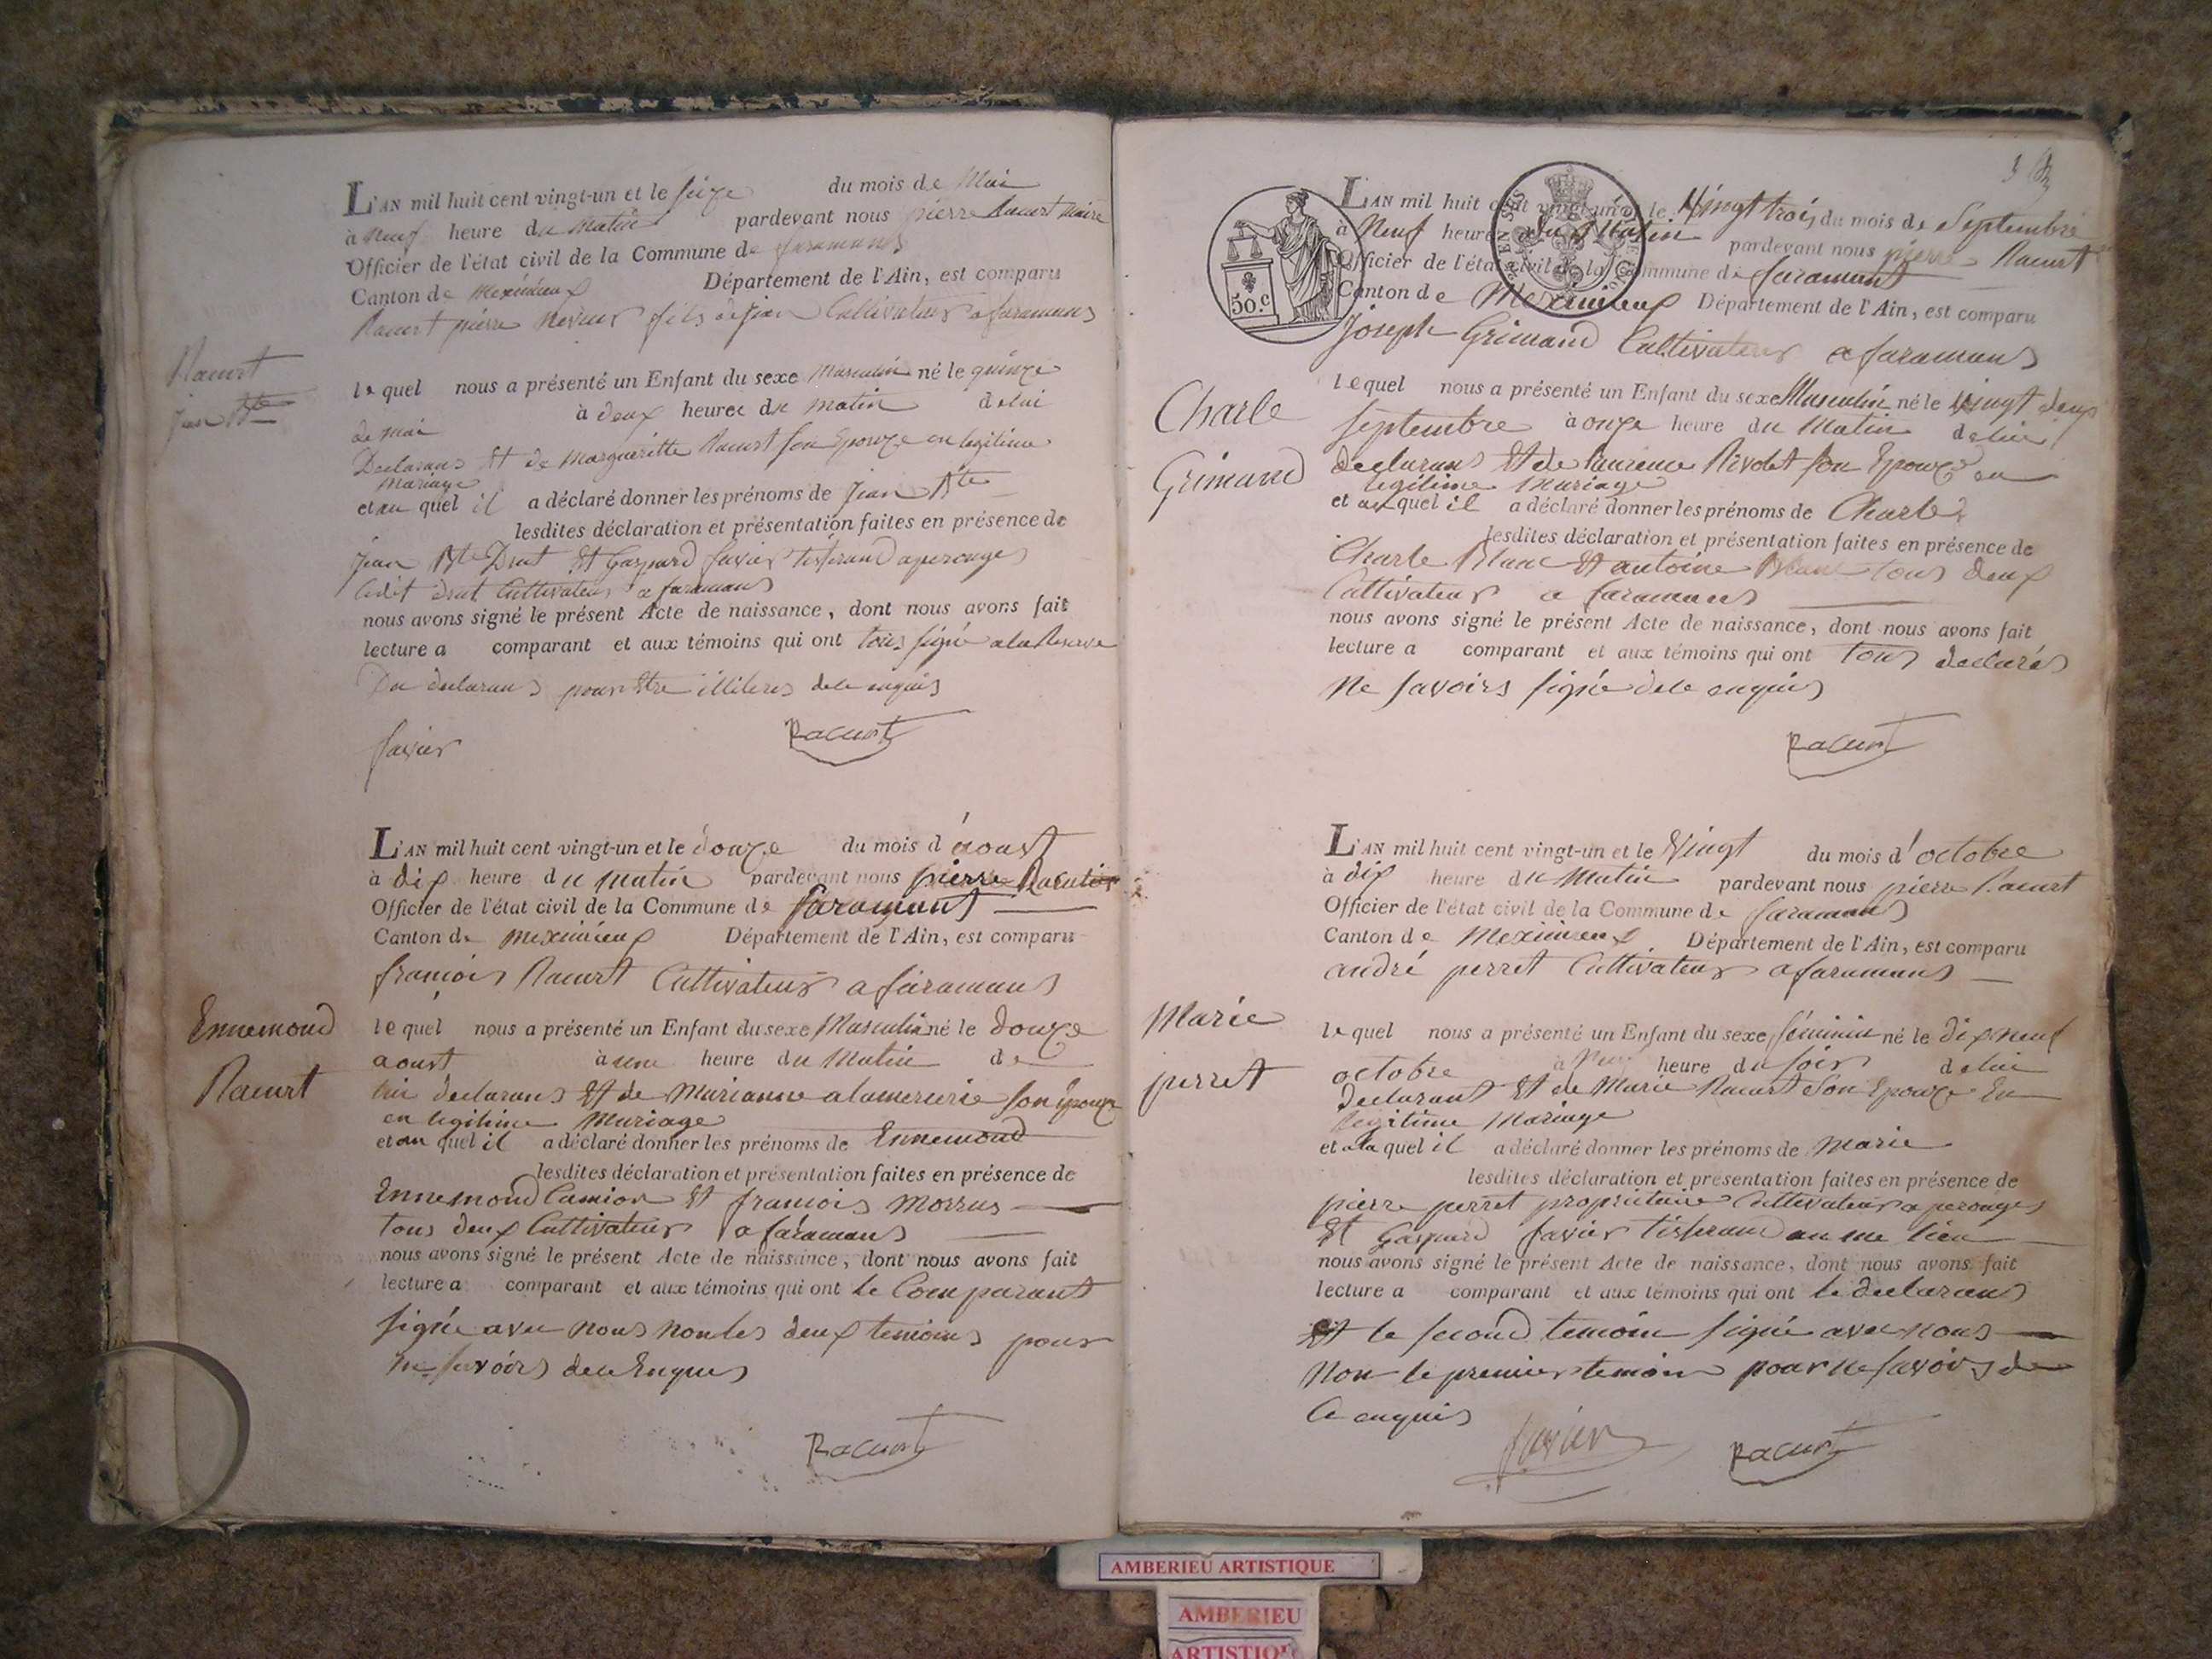 L'AN mil huit cent vingt-un et le seize du mois de Mai
à neuf heure du Matin pardevant nous pierre Racurt Maire
Officier de l'état civil de la Commune de faramans
Canton de meximieux Département de l'Ain, est comparu
Racurt pierre fils de jean Cultivateur a faramans
Racurt
jean Bte
lequel nous a présenté un Enfant du sexe Masculin né le quinze
de mai à deux heures du matin de lui
Declarans Et de Margueritte Racurt son Epouze en legitime
Mariage
et au quel il a déclaré donner les prénoms de jean Bte
lesdites déclaration et présentation faites en présence de
jean Bte Drut Et Gaspard favier tisserand a perouges
Ledit drut Cultivateur a faramans
nous avons signé le présent Acte de naissance, dont nous avons fait
lecture a comparant et aux témoins qui ont tous signé a la Reserve
Du declarans pour Etre illiteres de ce enquis
favier Racurt
L'AN mil huit cent vingt-un et le douze du mois d'aoust
à dix heure du matin pardevant nous pierre Racurt
Officier de l'état civil de la Commune de faramans
Canton de meximieux Département de l'Ain, est comparu
francois Racurt Cultivateur a faramans
Ennemond
Racurt
lequel nous a présenté un Enfant du sexe Masculin né le douze
aoust à une heure du Matin de
lui declarans Et de Marianne alamercerie son Epouze
en legitime Mariage
et au quel il a déclaré donner les prénoms de Ennemond
lesdites déclaration et présentation faites en présence de
Ennemond Camion Et francois Morras
tous deux Cultivateur a faramans
nous avons signé le présent Acte de naissance, dont nous avons fait
lecture a comparant et aux témoins qui ont le Comparant
signé avec nous non les deux temoins pour
ne savoirs de ce Enquis
Racurt
L'AN mil huit cent vingt-un et le Vingt trois du mois de Septembre
à Neuf heure du Matin pardevant nous pierre Racurt
Officier de l'état civil de la Commune de faramans
Canton de Meximieux Département de l'Ain, est comparu
50.c
Joseph Grimand Cultivateur a faramans
Charle
Grimand
lequel nous a présenté un Enfant du sexe Masculin né le vingt deux
septembre à onze heure du Matin de lui
declarans Et de laurence Rivolet son Epouze en
legitime Mariage
et au quel il a déclaré donner les prénoms de Charle
lesdites déclaration et présentation faites en présence de
Charle Blanc Et antoine Blanc tous deux
Cultivateur a faramans
nous avons signé le présent Acte de naissance, dont nous avons fait
lecture a comparant et aux témoins qui ont tous declarés
ne savoirs signé de ce enquis
Racurt
L'AN mil huit cent vingt-un et le Vingt du mois d'octobre
à dix heure du Matin pardevant nous pierre Racurt
Officier de l'état civil de la Commune de faramans
Canton de Meximieux Département de l'Ain, est comparu
andré perret Cultivateur a faramans
Marie
perret
lequel nous a présenté un Enfant du sexe féminin né le dix neuf
octobre à heure du soir de lui
declarant Et de Marie Racurt Son Epouze En
legitime Mariage
et a la quel il a déclaré donner les prénoms de Marie
lesdites déclaration et présentation faites en présence de
pierre perret propriétaire Cultivateur a perouges
Et Gaspard favier tisserand au me lieu
nous avons signé le présent Acte de naissance, dont nous avons fait
lecture a comparant et aux témoins qui ont le declarans
Et le second temoin signé avec nous
Non le premier temoin pour ne savoirs de
Ce enquis
favier Racurt
AMBERIEU ARTISTIQUE
AMBERIEU
ARTISTIQUE